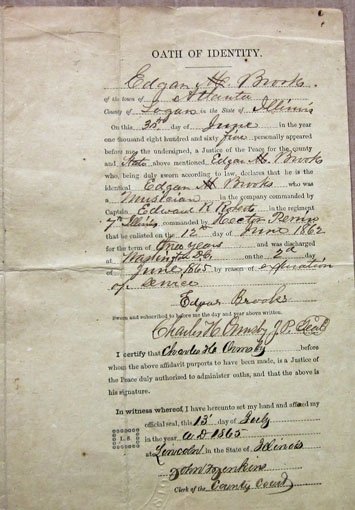 OATH OF IDENTITY.
Edgar H. Brooks
of the town of Atlanta
County of Logan in the State of Illinois
On this day of June in the year
one thousand eight hundred and sixty five personally appeared
before me the undersigned, a Justice of the Peace for the county
and State above mentioned Edgar H. Brooks
who, being duly sworn according to law, declares that he is the
identical Edgar H Brooks who was
a Musician in the company commanded by
Captain Edward R Roberts in the regiment
7th Illinois commanded by
that he enlisted on the 12th day of June 1862
for the term of three years and was discharged
at Washington D.C. on the 2d day
of June 1865 by reason of expiration
of service
Edgar Brooks
Sworn and subscribed to before me the day and year above written.
Charles H. Ormsby J.P. Seal
I certify that Charles H. Ormsby before
whom the above affidavit purports to have been made, is a Justice of
the Peace duly authorized to administer oaths, and that the above is
his signature.
In witness whereof I have hereunto set my hand and affixed my
official seal, this 13 day of July
L.S. in the year A.D 1865
at Lincoln in the State of Illinois
John Jenkins
Clerk of the County Court